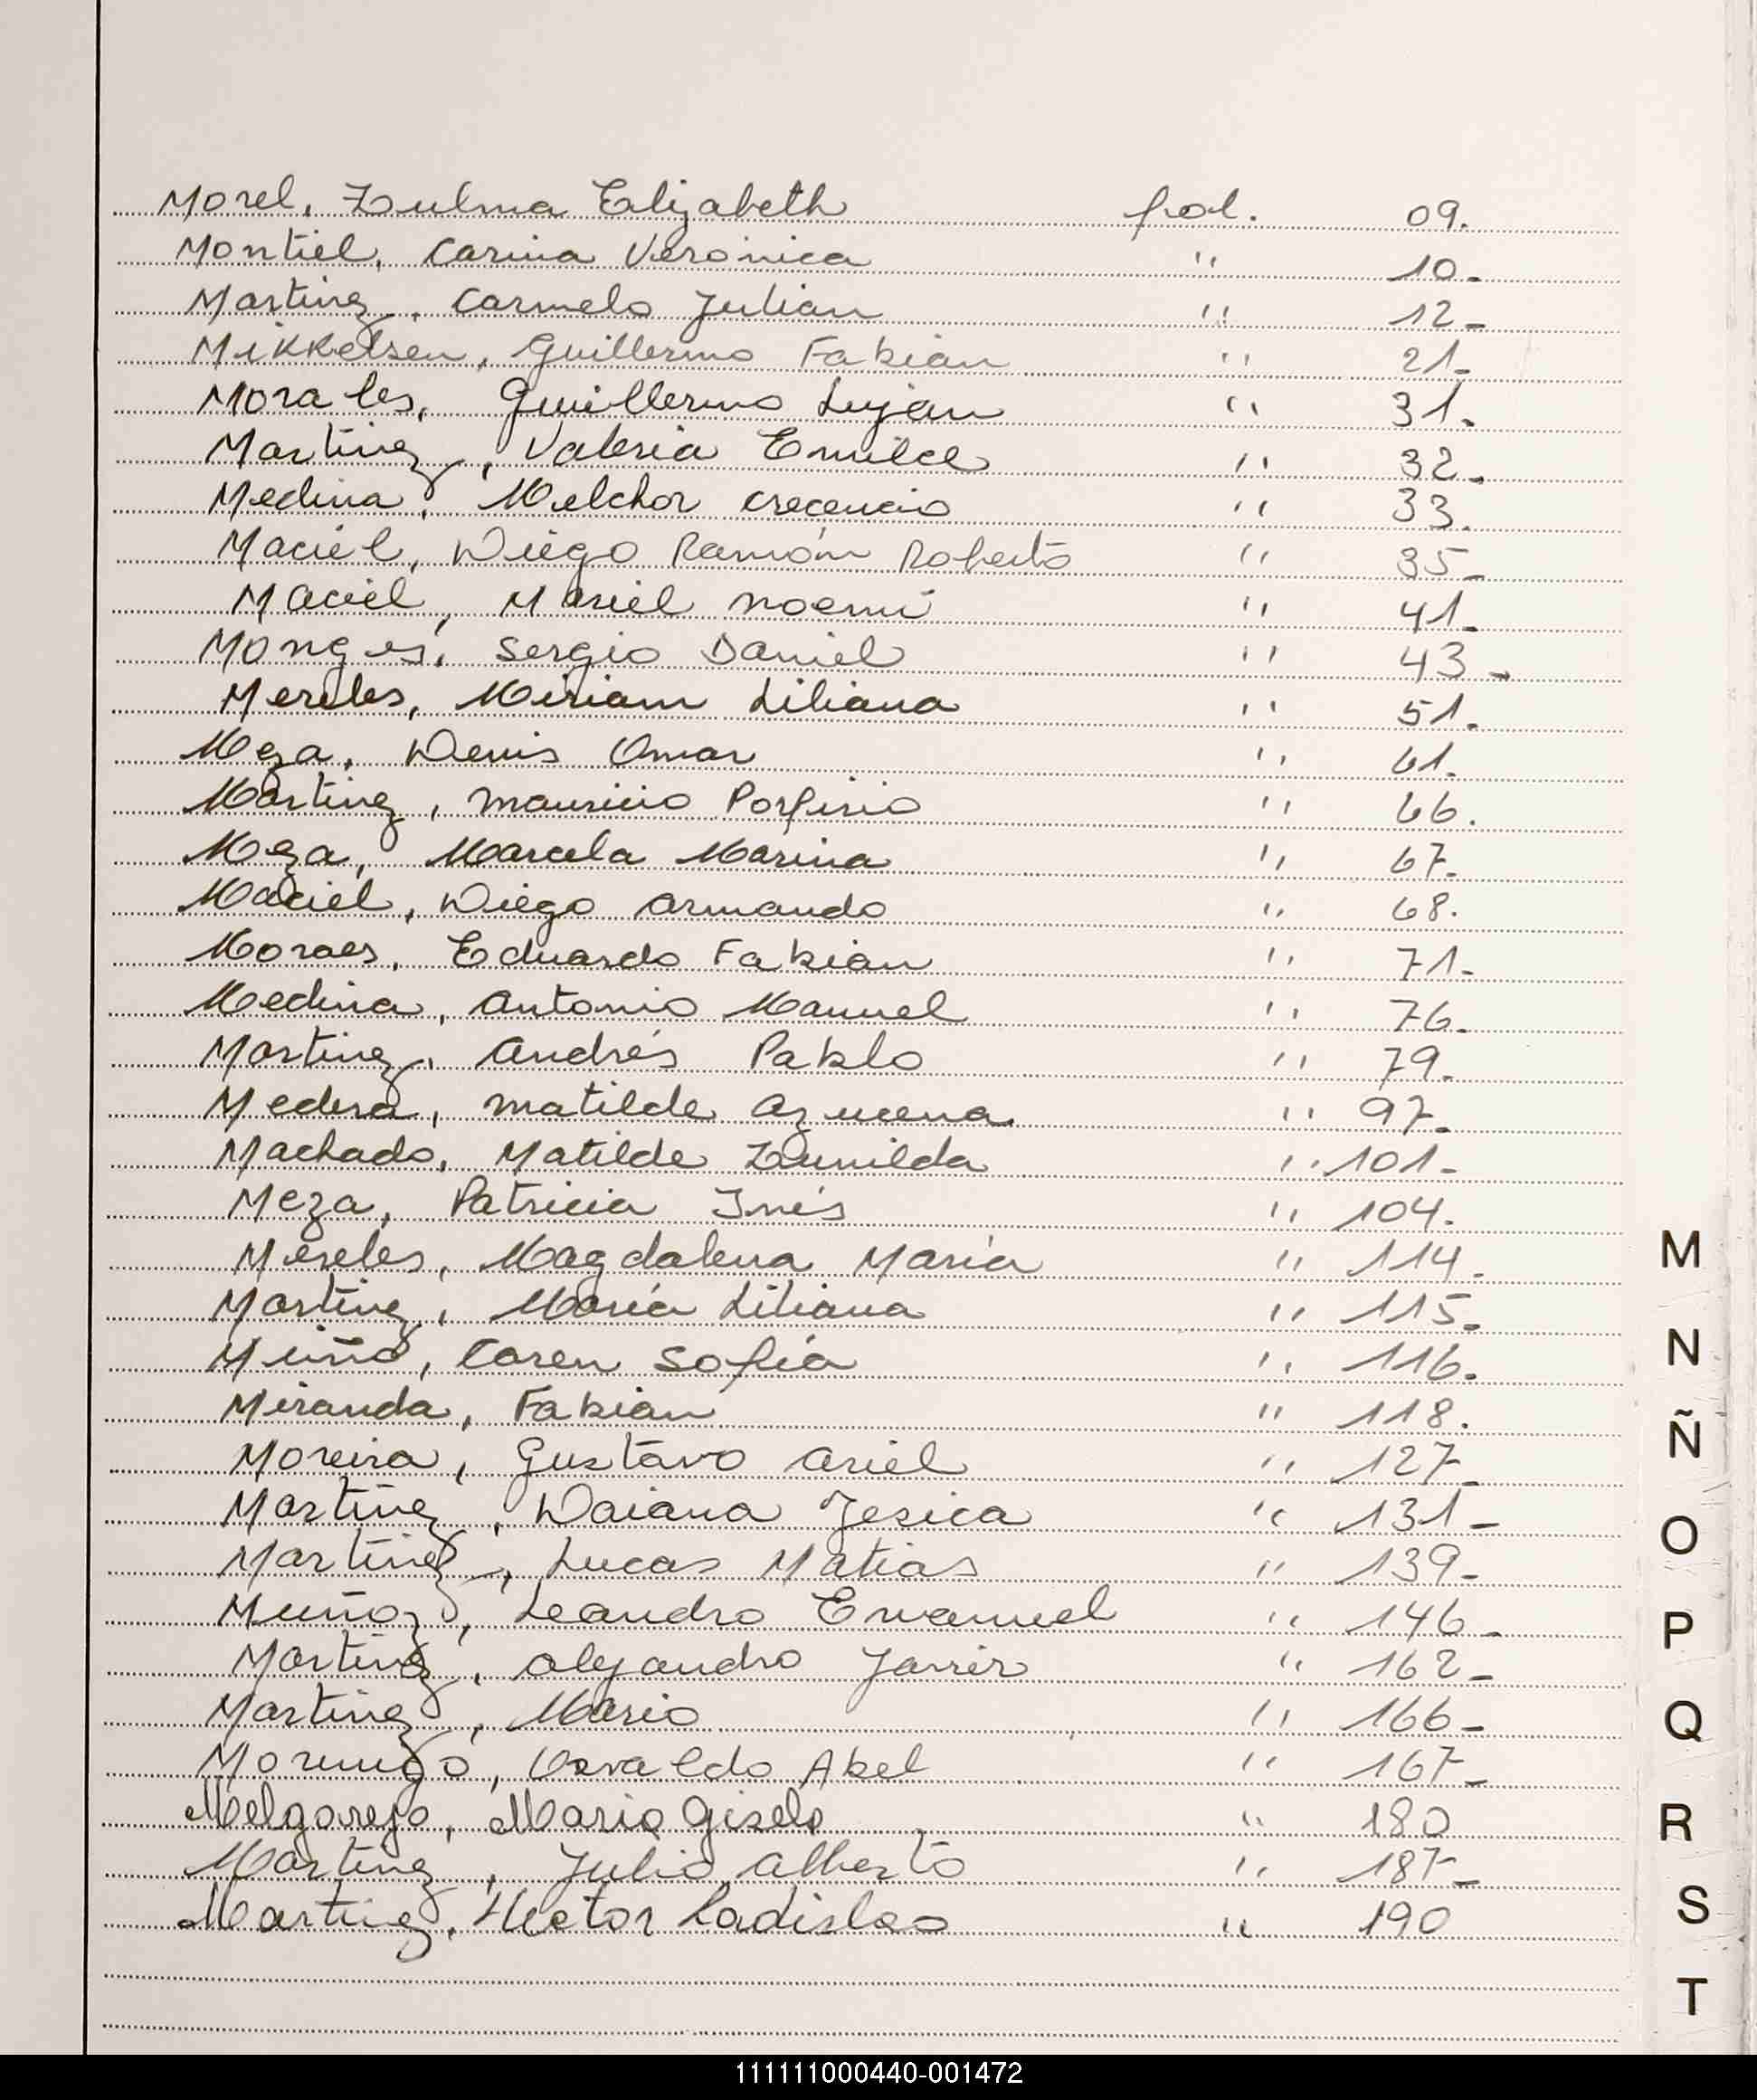 Morel, Zulma Elizabeth fol. 09.
Montiel, Carina Verónica " 10.
Martinez, Carmelo Julián " 12-
Mikkelsen, Guillermo Fabián " 21-
Morales, Guillermo Luján " 31.
Martinez, Valeria Emilce " 32.
Medina, Melchor Crecencio " 33.
Maciel, Diego Ramón Roberto " 35-
Maciel, Mariel Noemí " 41.
Monges, Sergio Daniel " 43-
Mereles, Miriam Liliana " 51.
Meza, Denis Omar " 61.
Martinez, Mauricio Porfirio " 66.
Meza, Marcela Marina " 67.
Maciel, Diego Armando " 68.
Moraes, Eduardo Fabián " 71-
Medina, Antonio Manuel " 76.
Martinez, Andrés Pablo " 79.
Medera, Matilde Azucena " 97-
Machado, Matilde Zunilda " 101-
Meza, Patricia Inés " 104.
Mereles, Magdalena María " 114.
Martinez, María Liliana " 115.
Muiño, Caren Sofía " 116.
Miranda, Fabián " 118.
Moreira, Gustavo Ariel " 127-
Martinez, Daiana Jesica " 131-
Martinez, Lucas Matias " 139-
Muñoz, Leandro Emanuel " 146-
Martinez, Alejandro Javier " 162-
Martinez, Mario " 166-
Moringo, Osvaldo Abel " 167-
Melgarejo, Mario Gisela " 180
Martinez, Julio Alberto " 187-
Martinez, Hector Ladislao " 190
M
N
Ñ
O
P
Q
R
S
T
111111000440-001472